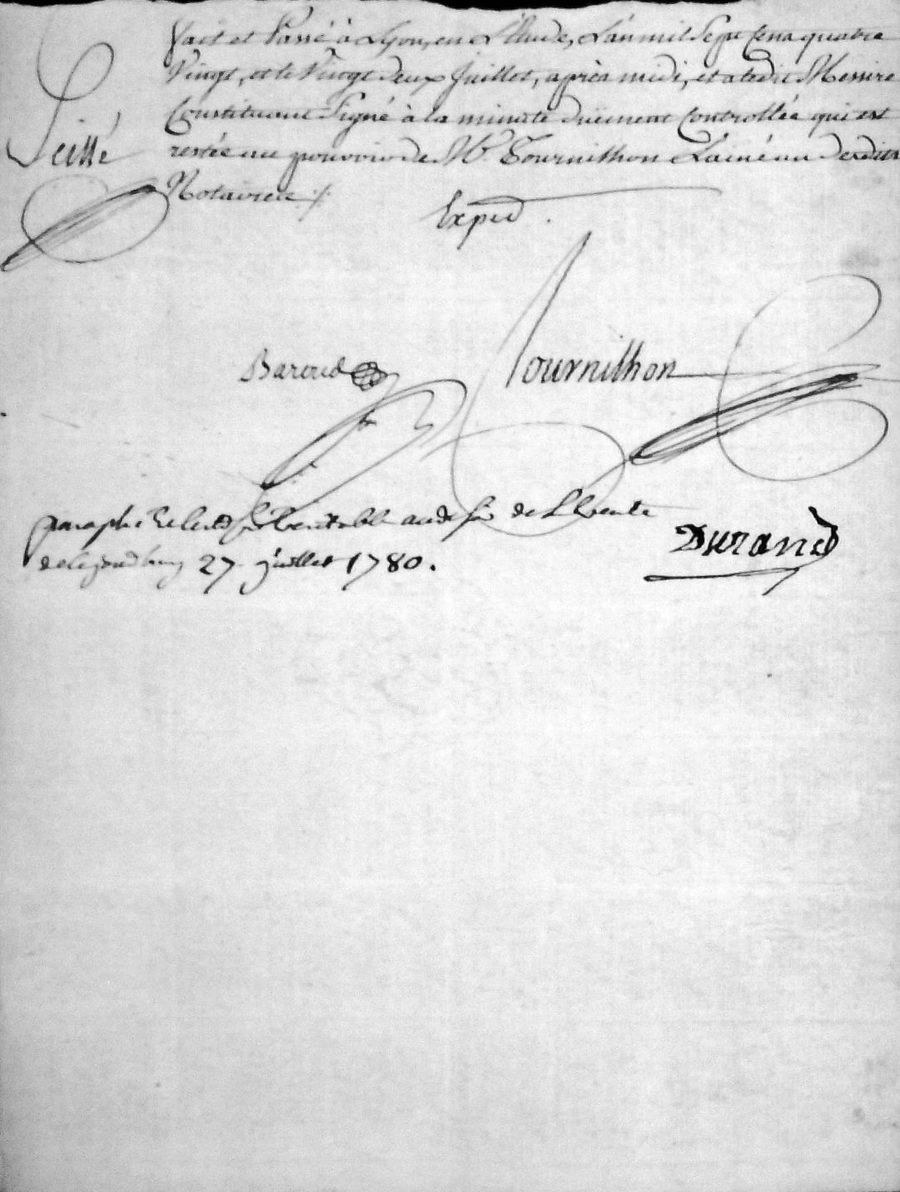 fait et Passé à Lyon, en L'Etude, L'an mil Sept Cent quatre
Vingt, et le Vingt deux Juillet, après midi, et a ledit Messire
Constituant Signé à la minute düement Controllée qui est
restée au pouvoir de Me. Tournilhon L'ainé un desdits
Notaires
Scellé
Exped
Baroud
Tournilhon
paraphé au de de la vente
27 juillet 1780.
Durand